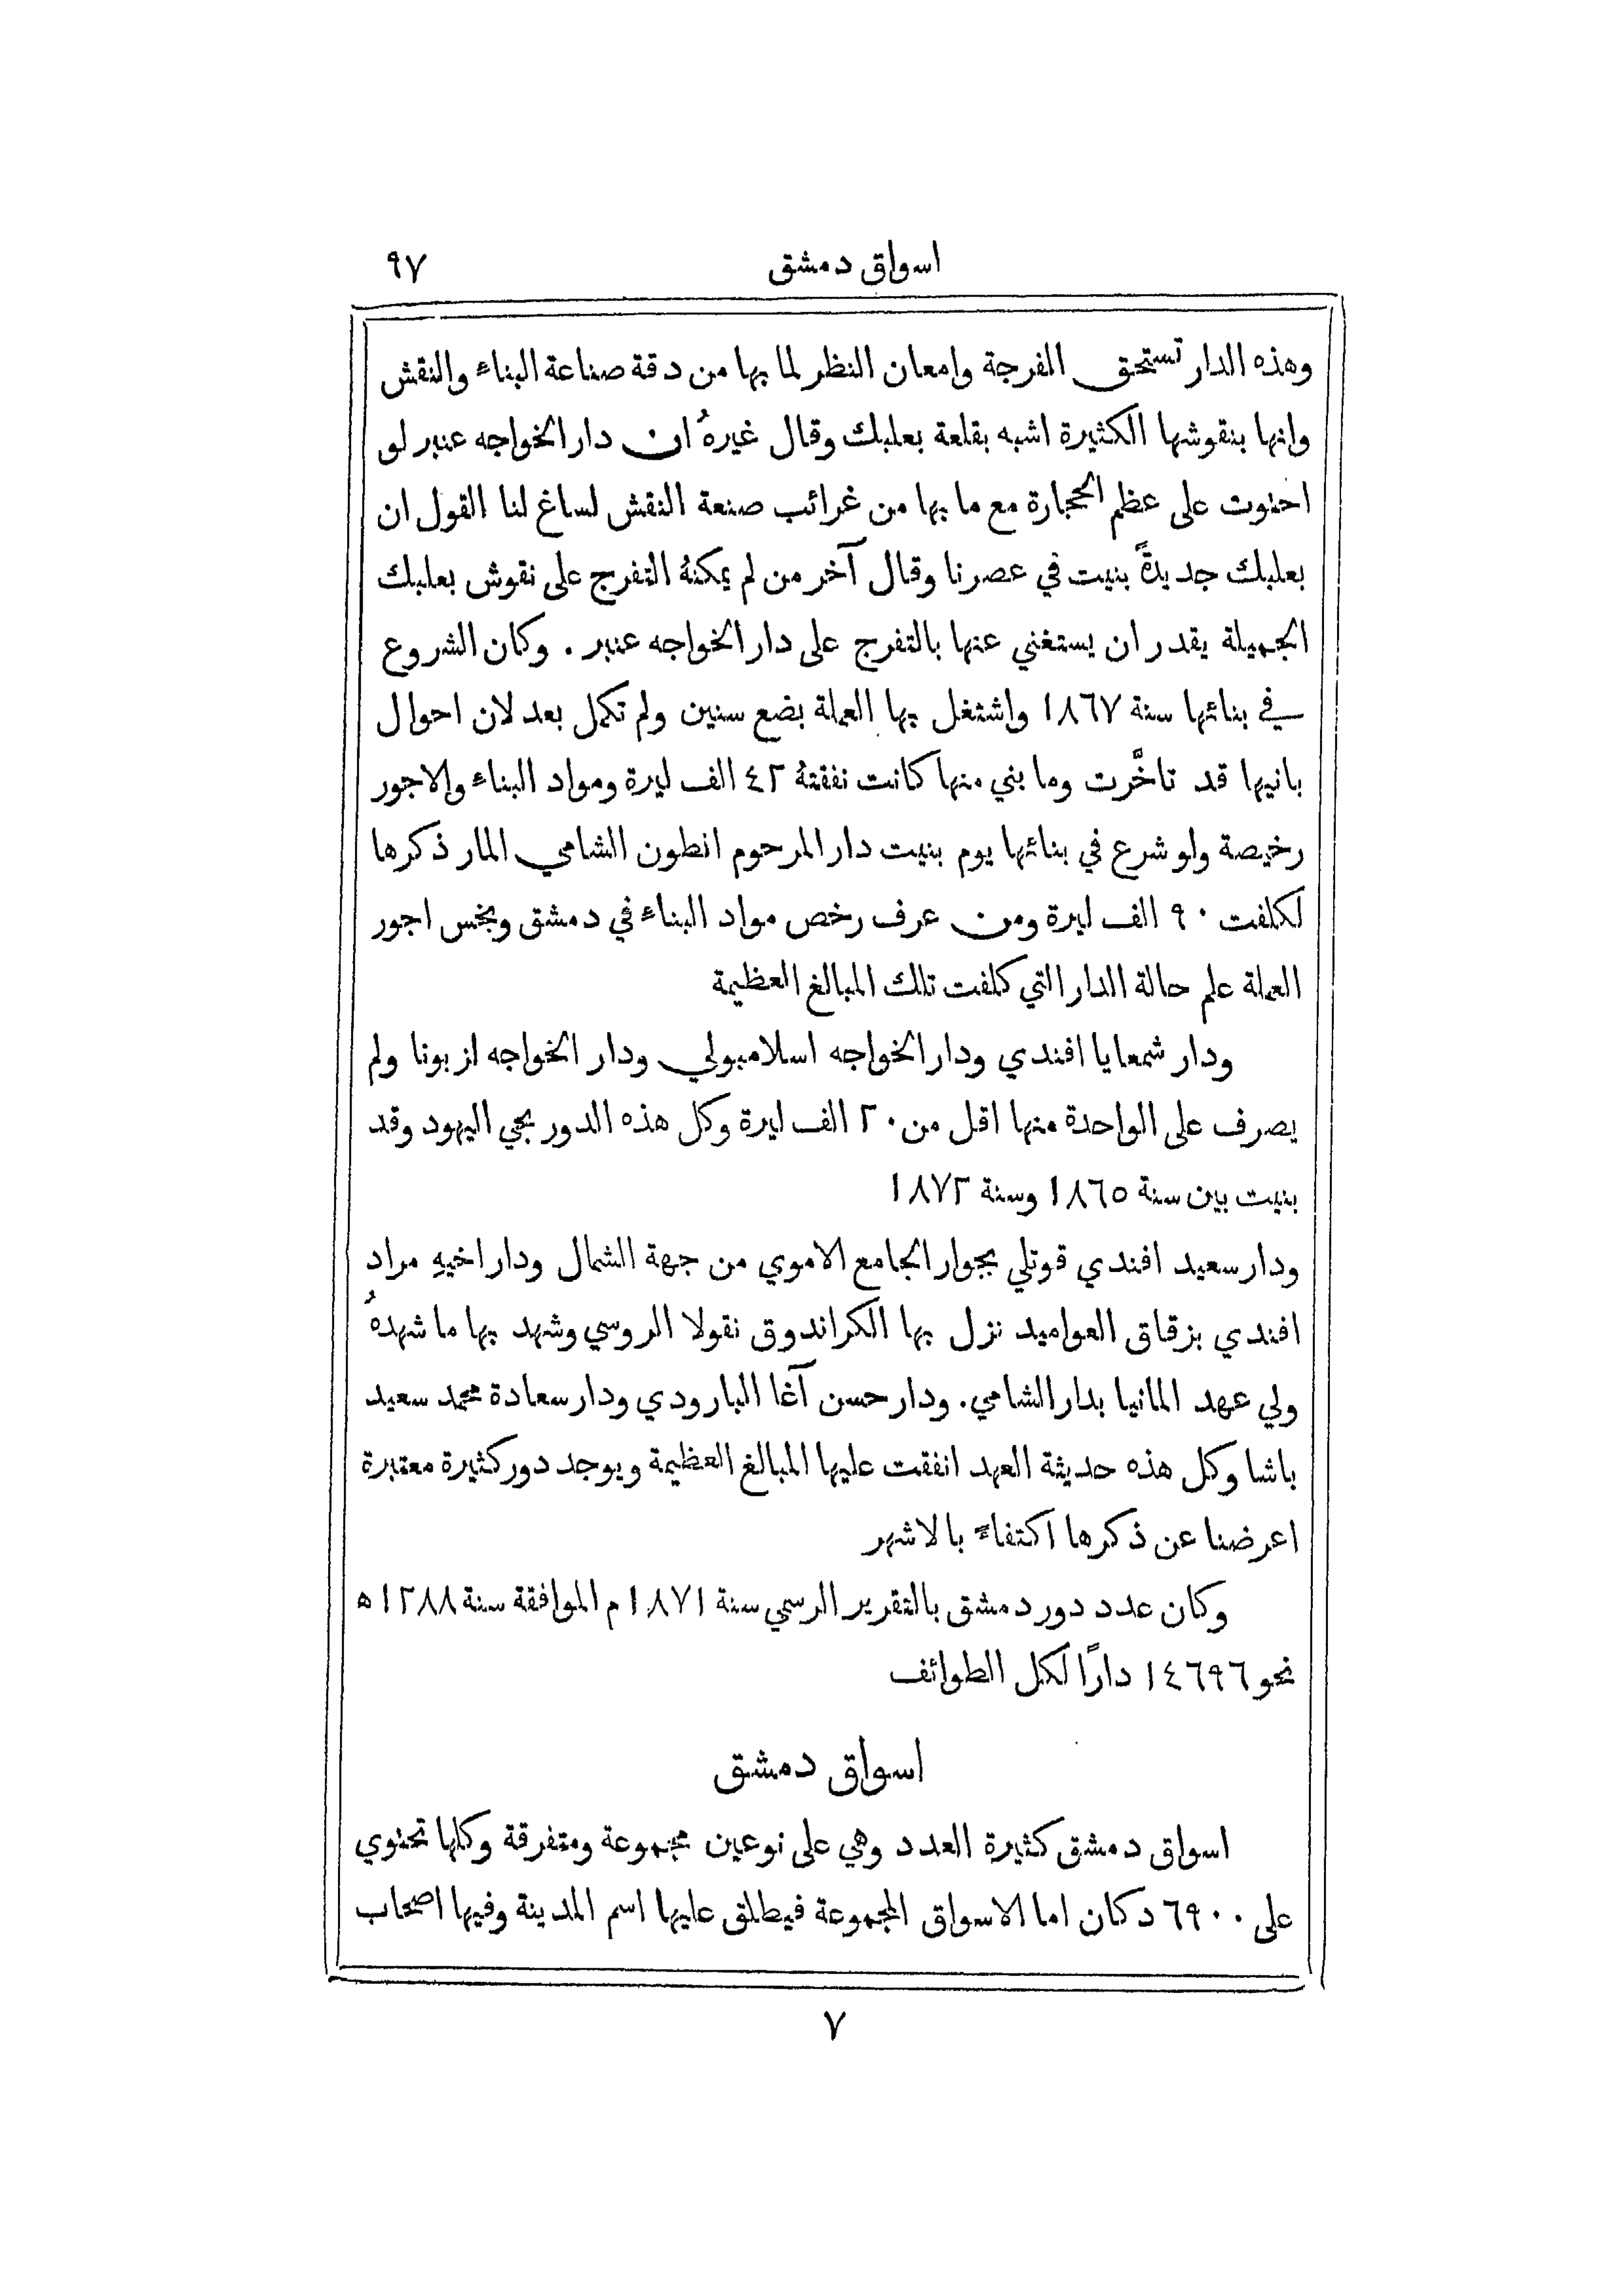 اسواق دمشق ٩٧
وهذه الدار تستحق الفرجة وامعان النظر لما بها من دقة صناعة البناء والنقش
وانها بنقوشها الكثيرة اشبه بقلعة بعلبك وقال غيرهُ ان دار الخواجه عنبر لو
احتوت على عظم الحجارة مع ما بها من غرائب صنعة النقش لساغ لنا القول ان
بعلبك جديدةً بنيت في عصرنا وقال آخر من لم يمكنهُ التفرج على نقوش بعلبك
الجميلة يقدر ان يستغني عنها بالتفرج على دار الخواجه عنبر . وكان الشروع
في بنائها سنة ١٨٦٧ واشتغل بها العملة بضع سنين ولم تكمل بعد لان احوال
بانيها قد تاخَّرت وما بني منها كانت نفقتهُ ٤٢ الف ليرة ومواد البناء والاجور
رخيصة ولو شرع في بنائها يوم بنيت دار المرحوم انطون الشامي المار ذكرها
لكلفت ٩٠ الف ليرة ومن عرف رخص مواد البناء في دمشق وبخس اجور
العملة علم حالة الدار التي كلفت تلك المبالغ العظيمة
ودار شمعايا افندي ودار الخواجه اسلامبولي ودار الخواجه ازبونا ولم
يصرف على الواحدة منها اقل من ٢٠ الف ليرة وكل هذه الدور بحي اليهود وقد
بنيت بين سنة ١٨٦٥ وسنة ١٨٧٢
ودار سعيد افندي قوتلي بجوار الجامع الاموي من جهة الشمال ودار اخيهِ مراد
افندي بزقاق العواميد نزل بها الكراندوق نقولا الروسي وشهد بها ما شهدهُ
ولي عهد المانيا بدار الشامي. ودار حسن آغا البارودي ودار سعادة محمد سعيد
باشا وكل هذه حديثة العهد انفقت عليها المبالغ العظيمة ويوجد دور كثيرة معتبرة
اعرضنا عن ذكرها اكتفاءً بالاشهر
وكان عدد دور دمشق بالتقرير الرسمي سنة ١٨٧١ م الموافقة سنة ١٢٨٨ ه
نحو ١٤٦٩٦ دارًا لكل الطوائف
اسواق دمشق
اسواق دمشق كثيرة العدد وهي على نوعين مجموعة ومتفرقة وكلها تحتوي
على ٦٩٠٠ دكان اما الاسواق المجموعة فيطلق عليها اسم المدينة وفيها اصحاب
٧